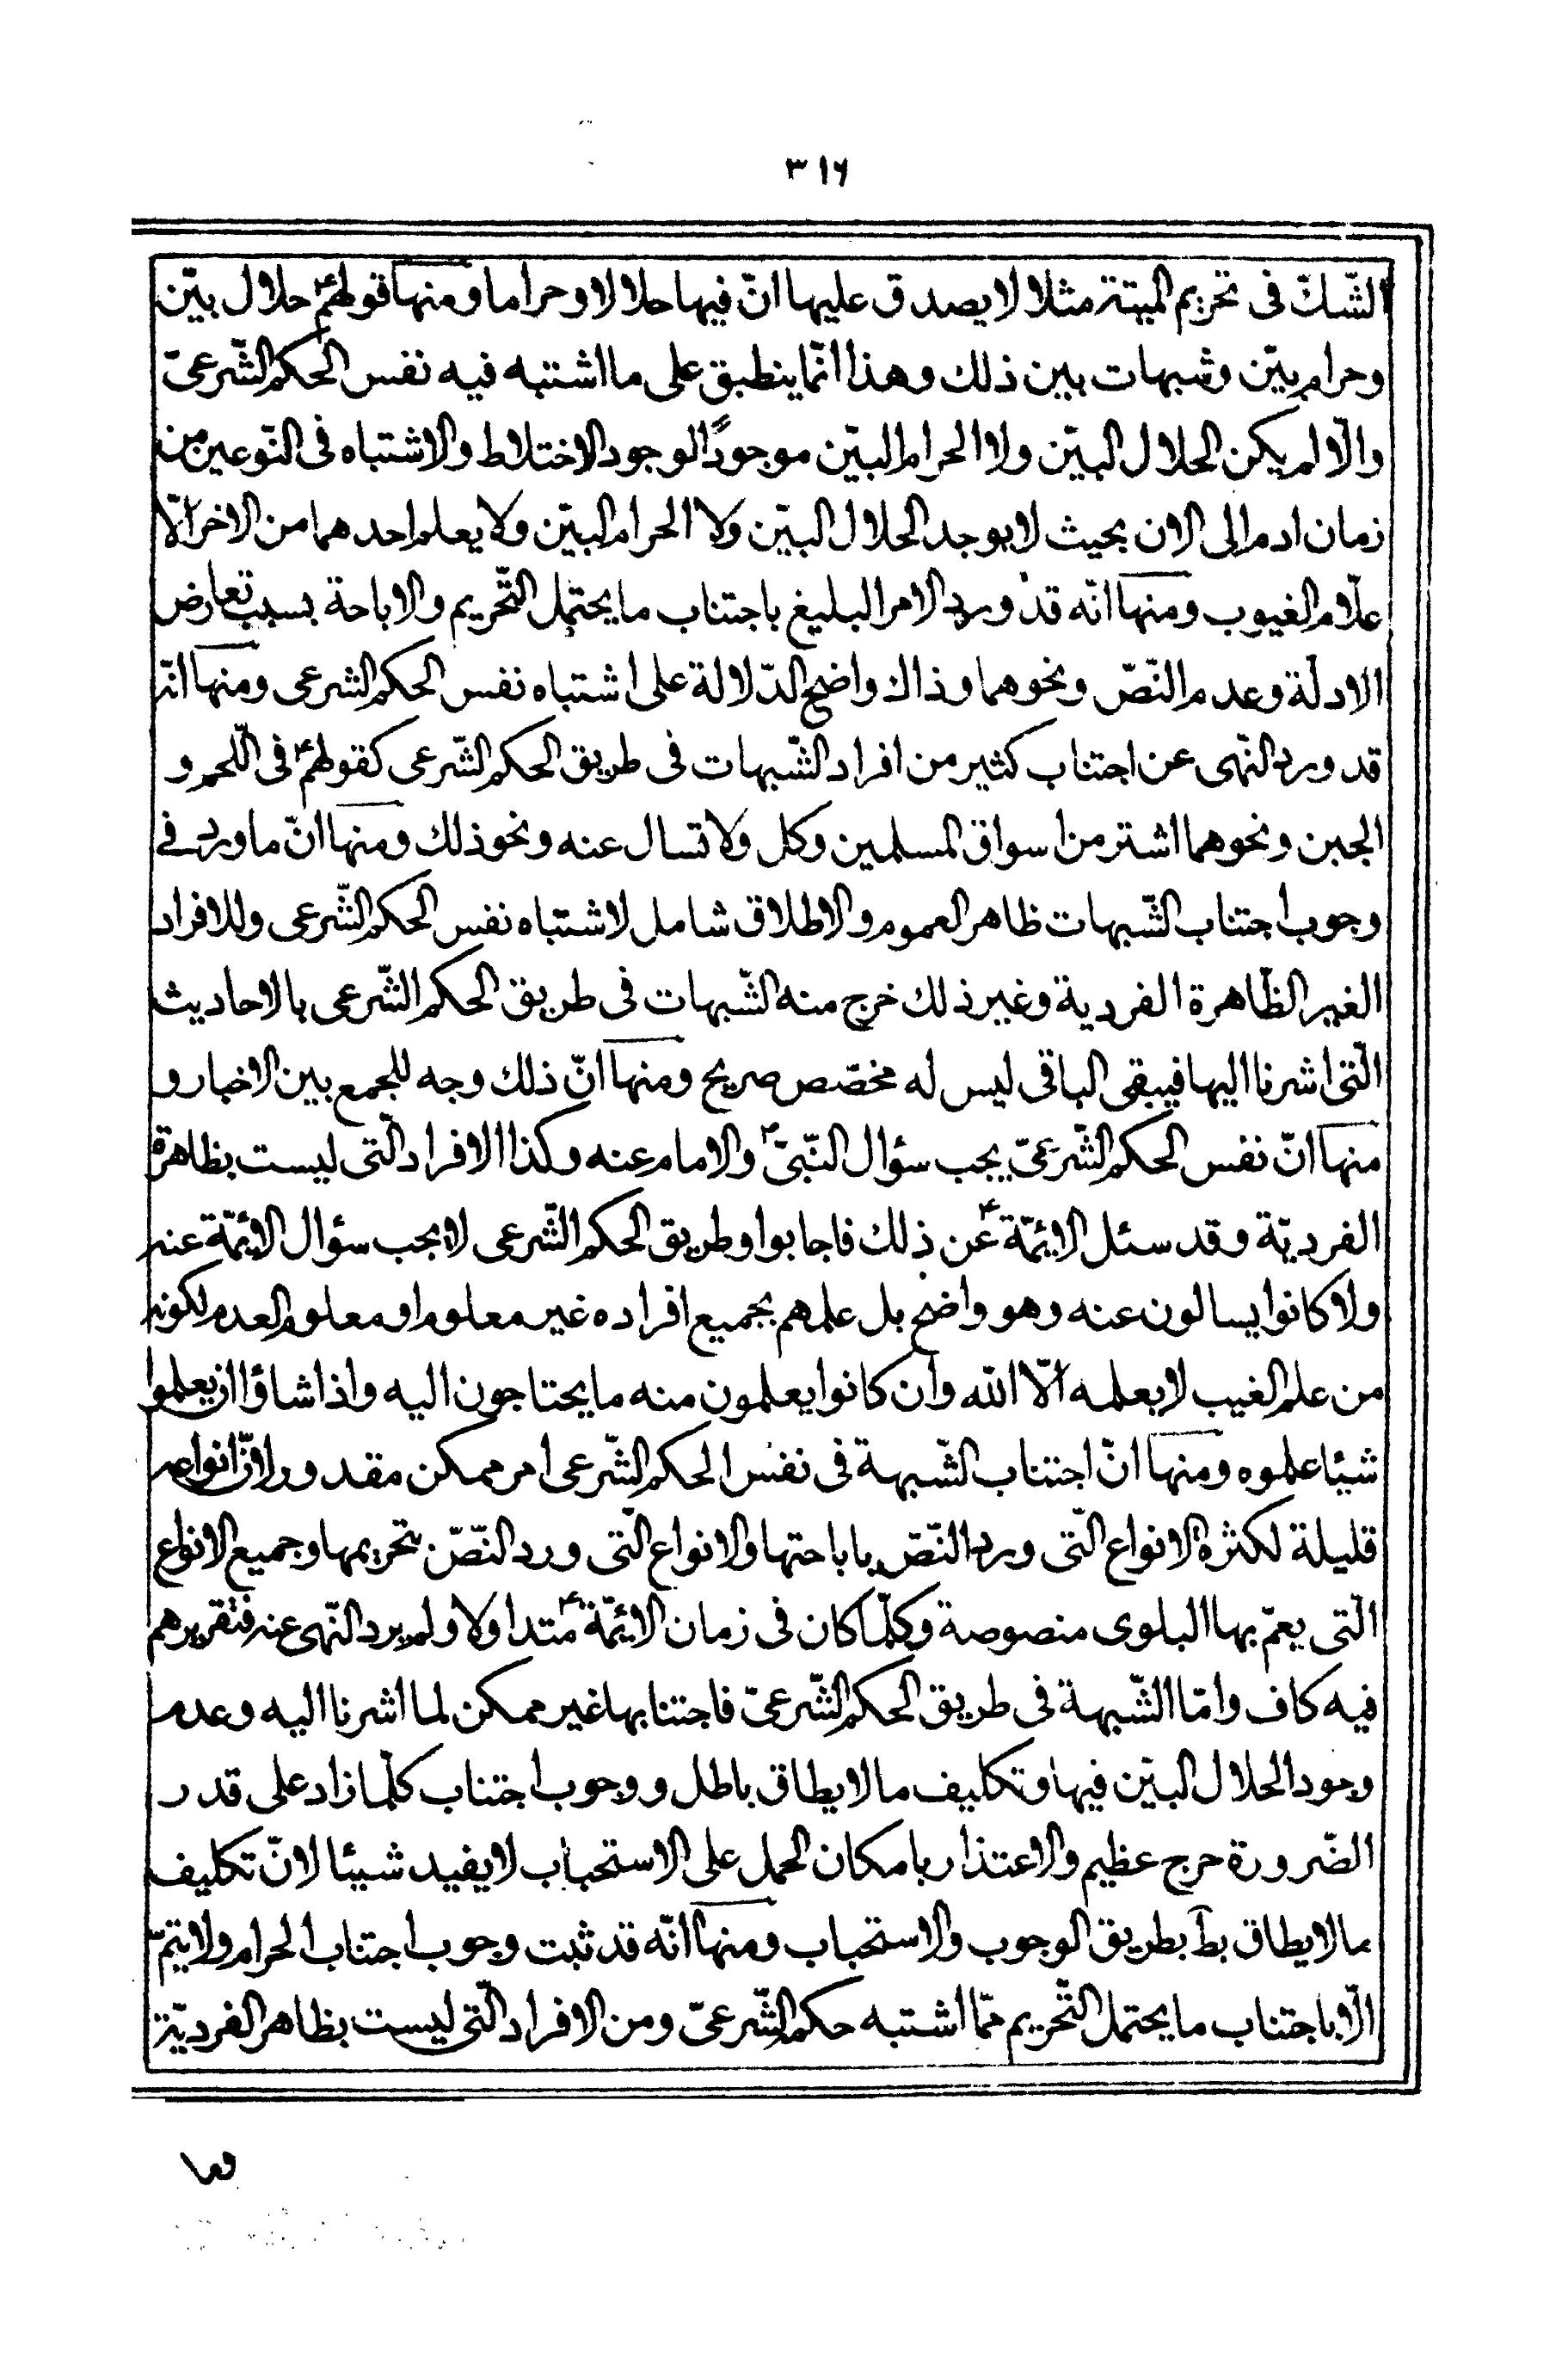 ٣١٦
الشّكّ فى تحريم الميتة مثلا لا يصدق عليها انّ فيها حلالا وحراما ومنها قولهم ع حلال بيّن
وحرام بيّن وشبهات بين ذلك وهذا انّما ينطبق على ما اشتبه فيه نفس الحكم الشّرعىّ
والّا لم يكن الحلال البيّن ولا الحرام البيّن موجودًا لوجود الاختلاط والاشتباه فى النّوعين من
زمان ادم الى الان بحيث لا يوجد الحلال البيّن ولا الحرام البيّن ولا يعلم احدهما من الاخر الّا
علّام الغيوب ومنها انّه قد ورد الامر البليغ باجتناب ما يحتمل التّحريم والاباحة بسبب تعارض
الادلّة وعدم النّصّ ونحوهما وذاك واضح الدّلالة على اشتباه نفس الحكم الشرعى ومنها انّه
قد ورد النّهى عن اجتناب كثير من افراد الشّبهات فى طريق الحكم الشّرعى كقولهم ع فى اللّحم و
الجبن ونحوهما اشتر من اسواق المسلمين وكل ولا تسال عنه ونحو ذلك ومنها انّ ما ورد فى
وجوب اجتناب الشّبهات ظاهر العموم والاطلاق شامل لاشتباه نفس الحكم الشّرعى وللافراد
الغير الظّاهرة الفردية وغير ذلك خرج منه الشّبهات فى طريق الحكم الشّرعى بالاحاديث
الّتى اشرنا اليها فيبقى الباقى ليس له مخصّص صريح ومنها انّ ذلك وجه للجمع بين الاخبار و
منها انّ نفس الحكم الشّرعىّ يجب سؤال النّبىّ ص والامام عنه وكذا الافراد الّتى ليست بظاهرة
الفرديّة وقد سئل الائمّة ع عن ذلك فاجابوا وطريق الحكم الشّرعى لا يجب سؤال الائمّة عنه
ولا كانوا يسالون عنه وهو واضح بل علمهم بجميع افراده غير معلوم او معلوم العدم لكونه
من علم الغيب لا يعلمه الّا الله وان كانوا يعلمون منه ما يحتاجون اليه واذا شاؤا ان يعلموا
شيئا علموه ومنها انّ اجتناب الشّبهة فى نفس الحكم الشّرعى امر ممكن مقدور لانّ انواعه
قليلة لكثرة الانواع الّتى ورد النّصّ باباحتها والانواع الّتى ورد النّصّ بتحريمها وجميع الانواع
الّتى يعمّ بها البلوى منصوصة وكلّما كان فى زمان الائمّة ع متداولا ولم يرد النّهى عنه فتقريرهم
فيه كاف وامّا الشّبهة فى طريق الحكم الشّرعىّ فاجتنابها غير ممكن لما اشرنا اليه وعدم
وجود الحلال البيّن فيها وتكليف ما لا يطاق باطل ووجوب اجتناب كلّما زاد على قدر
الضّرورة حرج عظيم والاعتذار بامكان الحمل على الاستحباب لا يفيد شيئا لانّ تكليف
ما لا يطاق بط بطريق الوجوب والاستحباب ومنها انّه قد ثبت وجوب اجتناب الحرام ولا يتمّ
الّا باجتناب ما يحتمل التّحريم ممّا اشتبه حكم الشّرعىّ ومن الافراد الّتى ليست بظاهر الفرديّة